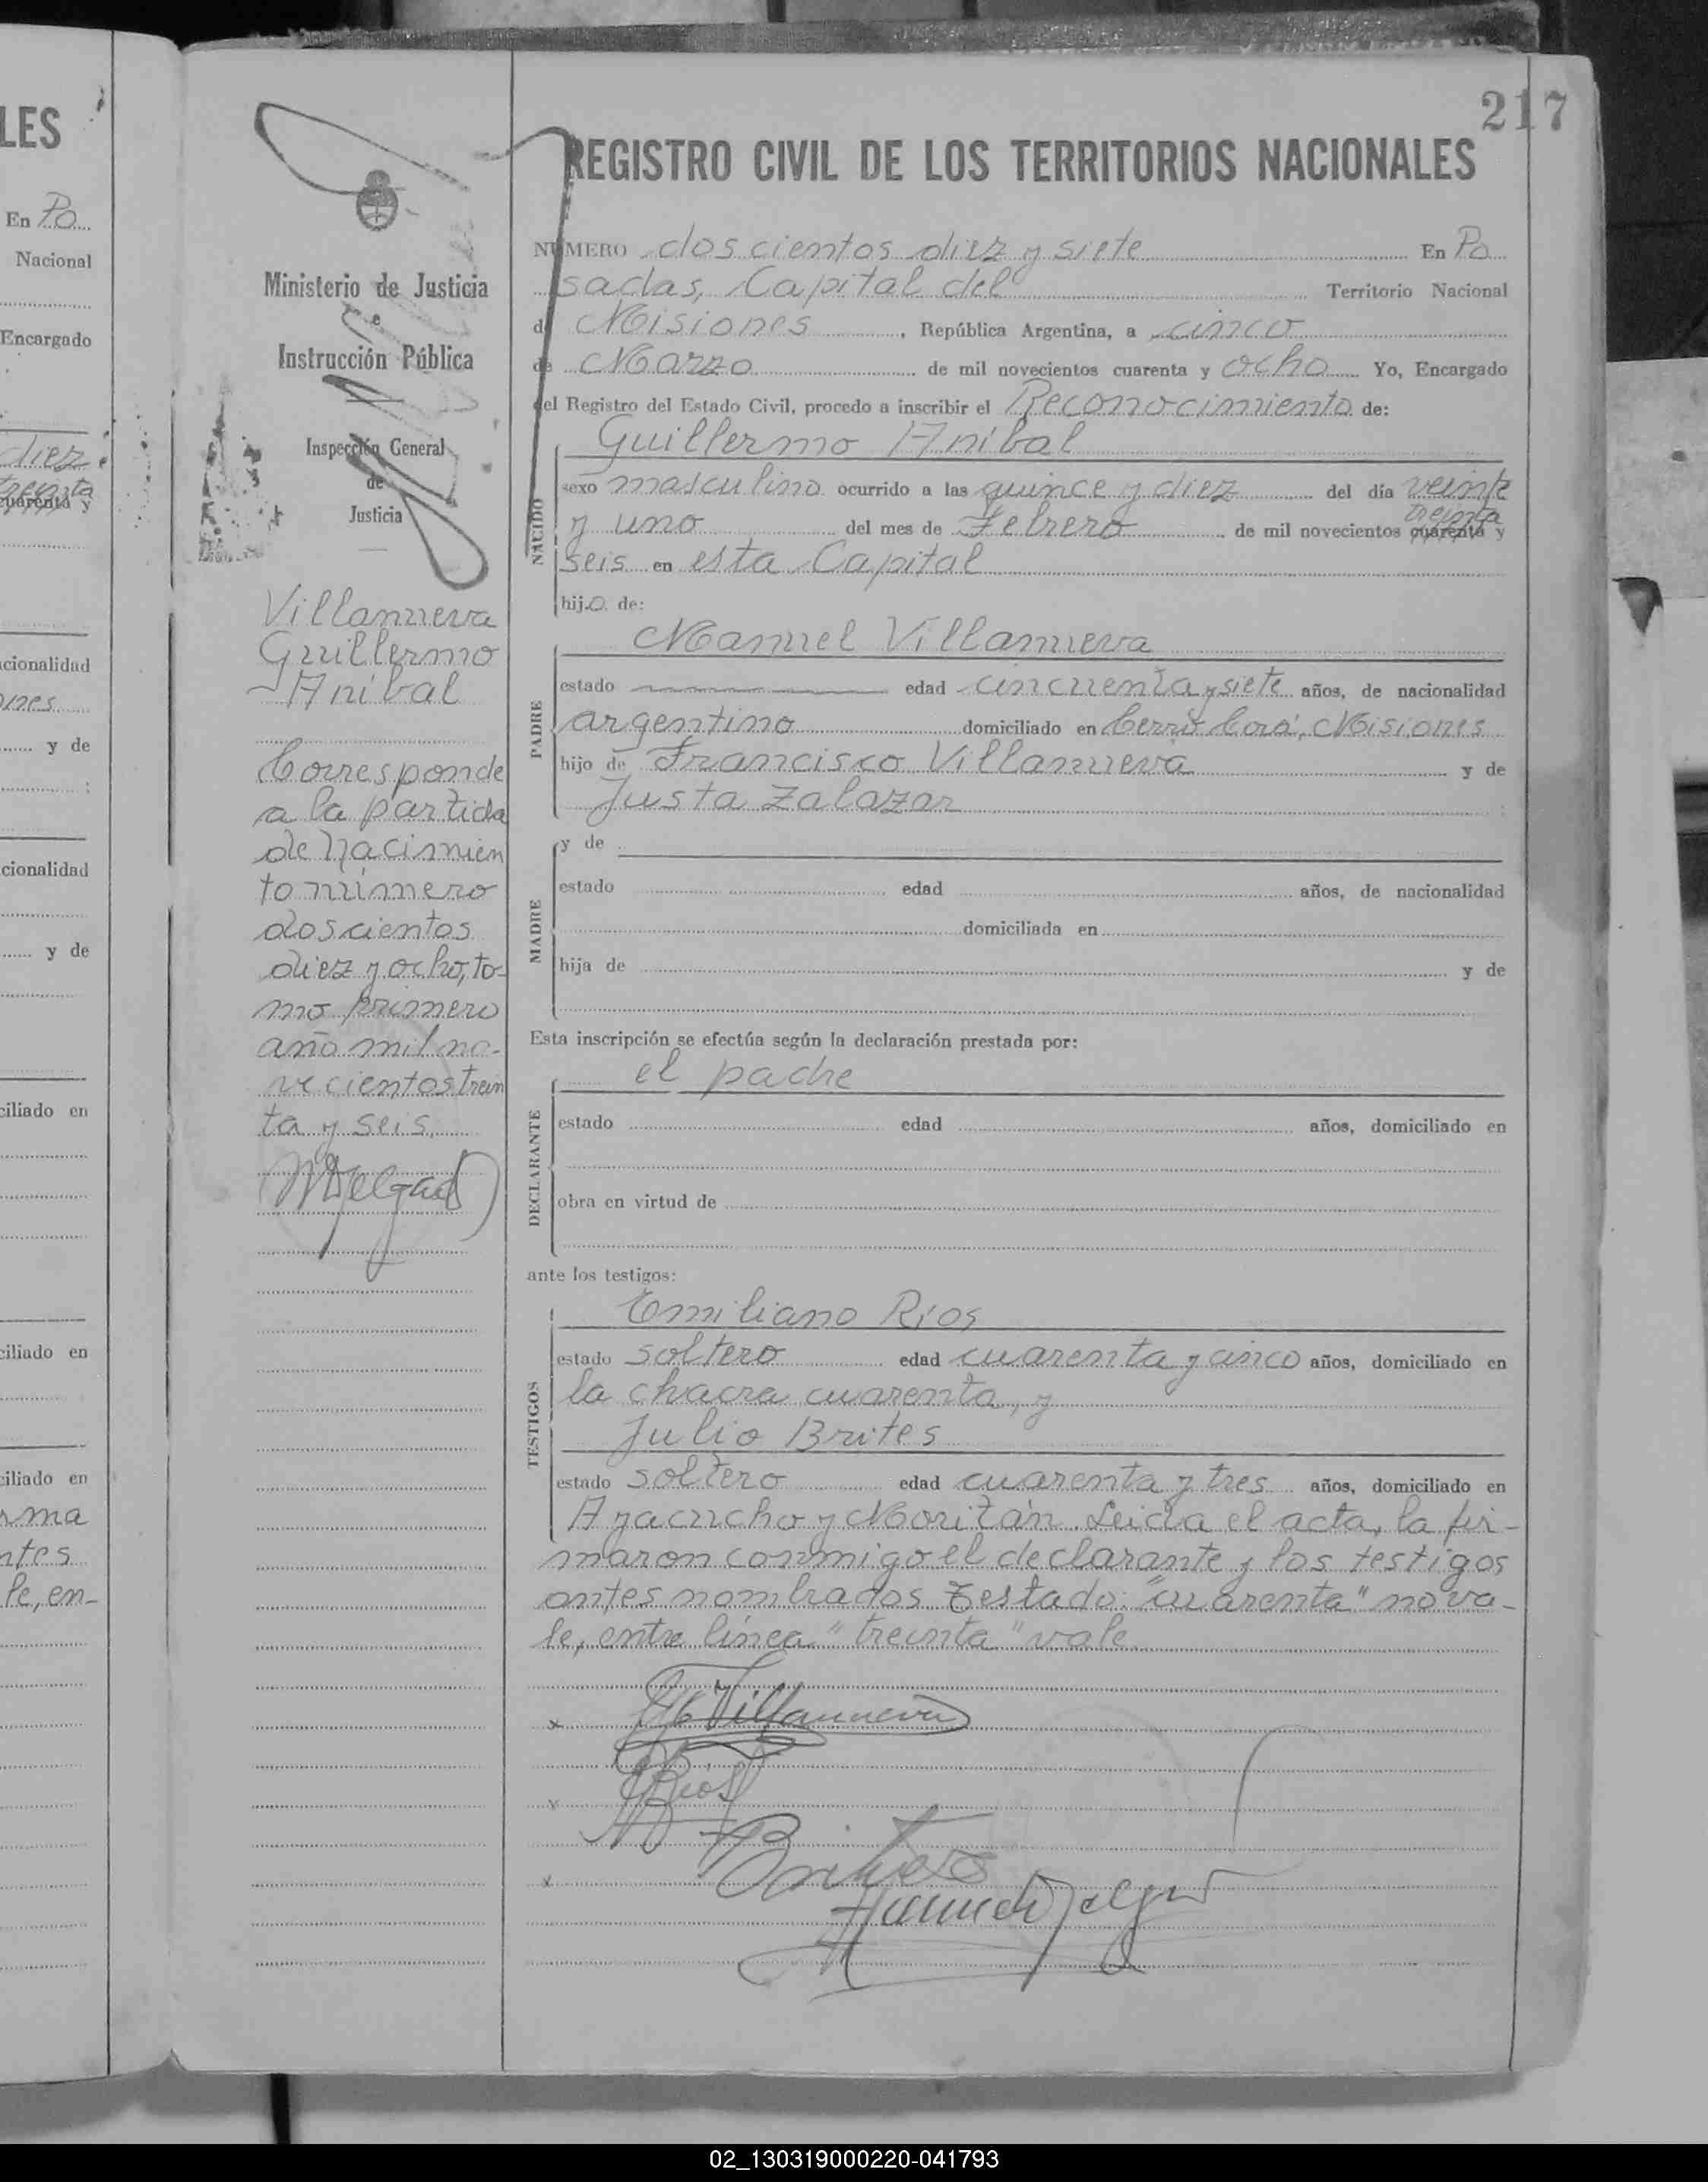 LES
En Po
Nacional
Encargado
diez
treinta
cuarenta y
cionalidad
ones
y de
cionalidad
y de
ciliado en
ciliado en
ciliado en
rma
ntes
le, en-
Ministerio de Justicia
e
Instrucción Pública
Inspección General
de
Justicia
Villanueva
Guillermo
Anibal
Corresponde
a la partida
de nacimien
to número
doscientos
diez y ocho, to-
mo primero
año mil no-
vecientos trein
ta y seis.
217
REGISTRO CIVIL DE LOS TERRITORIOS NACIONALES
NÚMERO doscientos diez y siete En Po
sadas, Capital del Territorio Nacional
de Misiones, República Argentina, a cinco
de Marzo de mil novecientos cuarenta y ocho Yo, Encargado
del Registro del Estado Civil, procedo a inscribir el Reconocimiento de:
Guillermo Anibal
NACIDO
sexo masculino ocurrido a las quince y diez del día veinte
treinta
y uno del mes de Febrero de mil novecientos cuarenta y
seis en esta Capital
hijo de:
Manuel Villanueva
PADRE
estado edad cincuenta y siete años, de nacionalidad
argentino domiciliado en Cerro Corá, Misiones
hijo de Francisco Villanueva y de
Justa Zalazar
MADRE
y de
estado edad años, de nacionalidad
domiciliada en
hija de y de
Esta inscripción se efectúa según la declaración prestada por:
el padre
DECLARANTE
estado edad años, domiciliado en
obra en virtud de
ante los testigos:
Emiliano Rios
TESTIGOS
estado soltero edad cuarenta y cinco años, domiciliado en
la chacra cuarenta, y
Julio Brites
estado soltero edad cuarenta y tres años, domiciliado en
Ayacucho y Moritán. Leida el acta, la fir-
maron conmigo el declarante y los testigos
antes nombrados Testado: "cuarenta" no va-
le, entre línea "treinta" vale
Villanueva
Rios
Brites
02_130319000220-041793